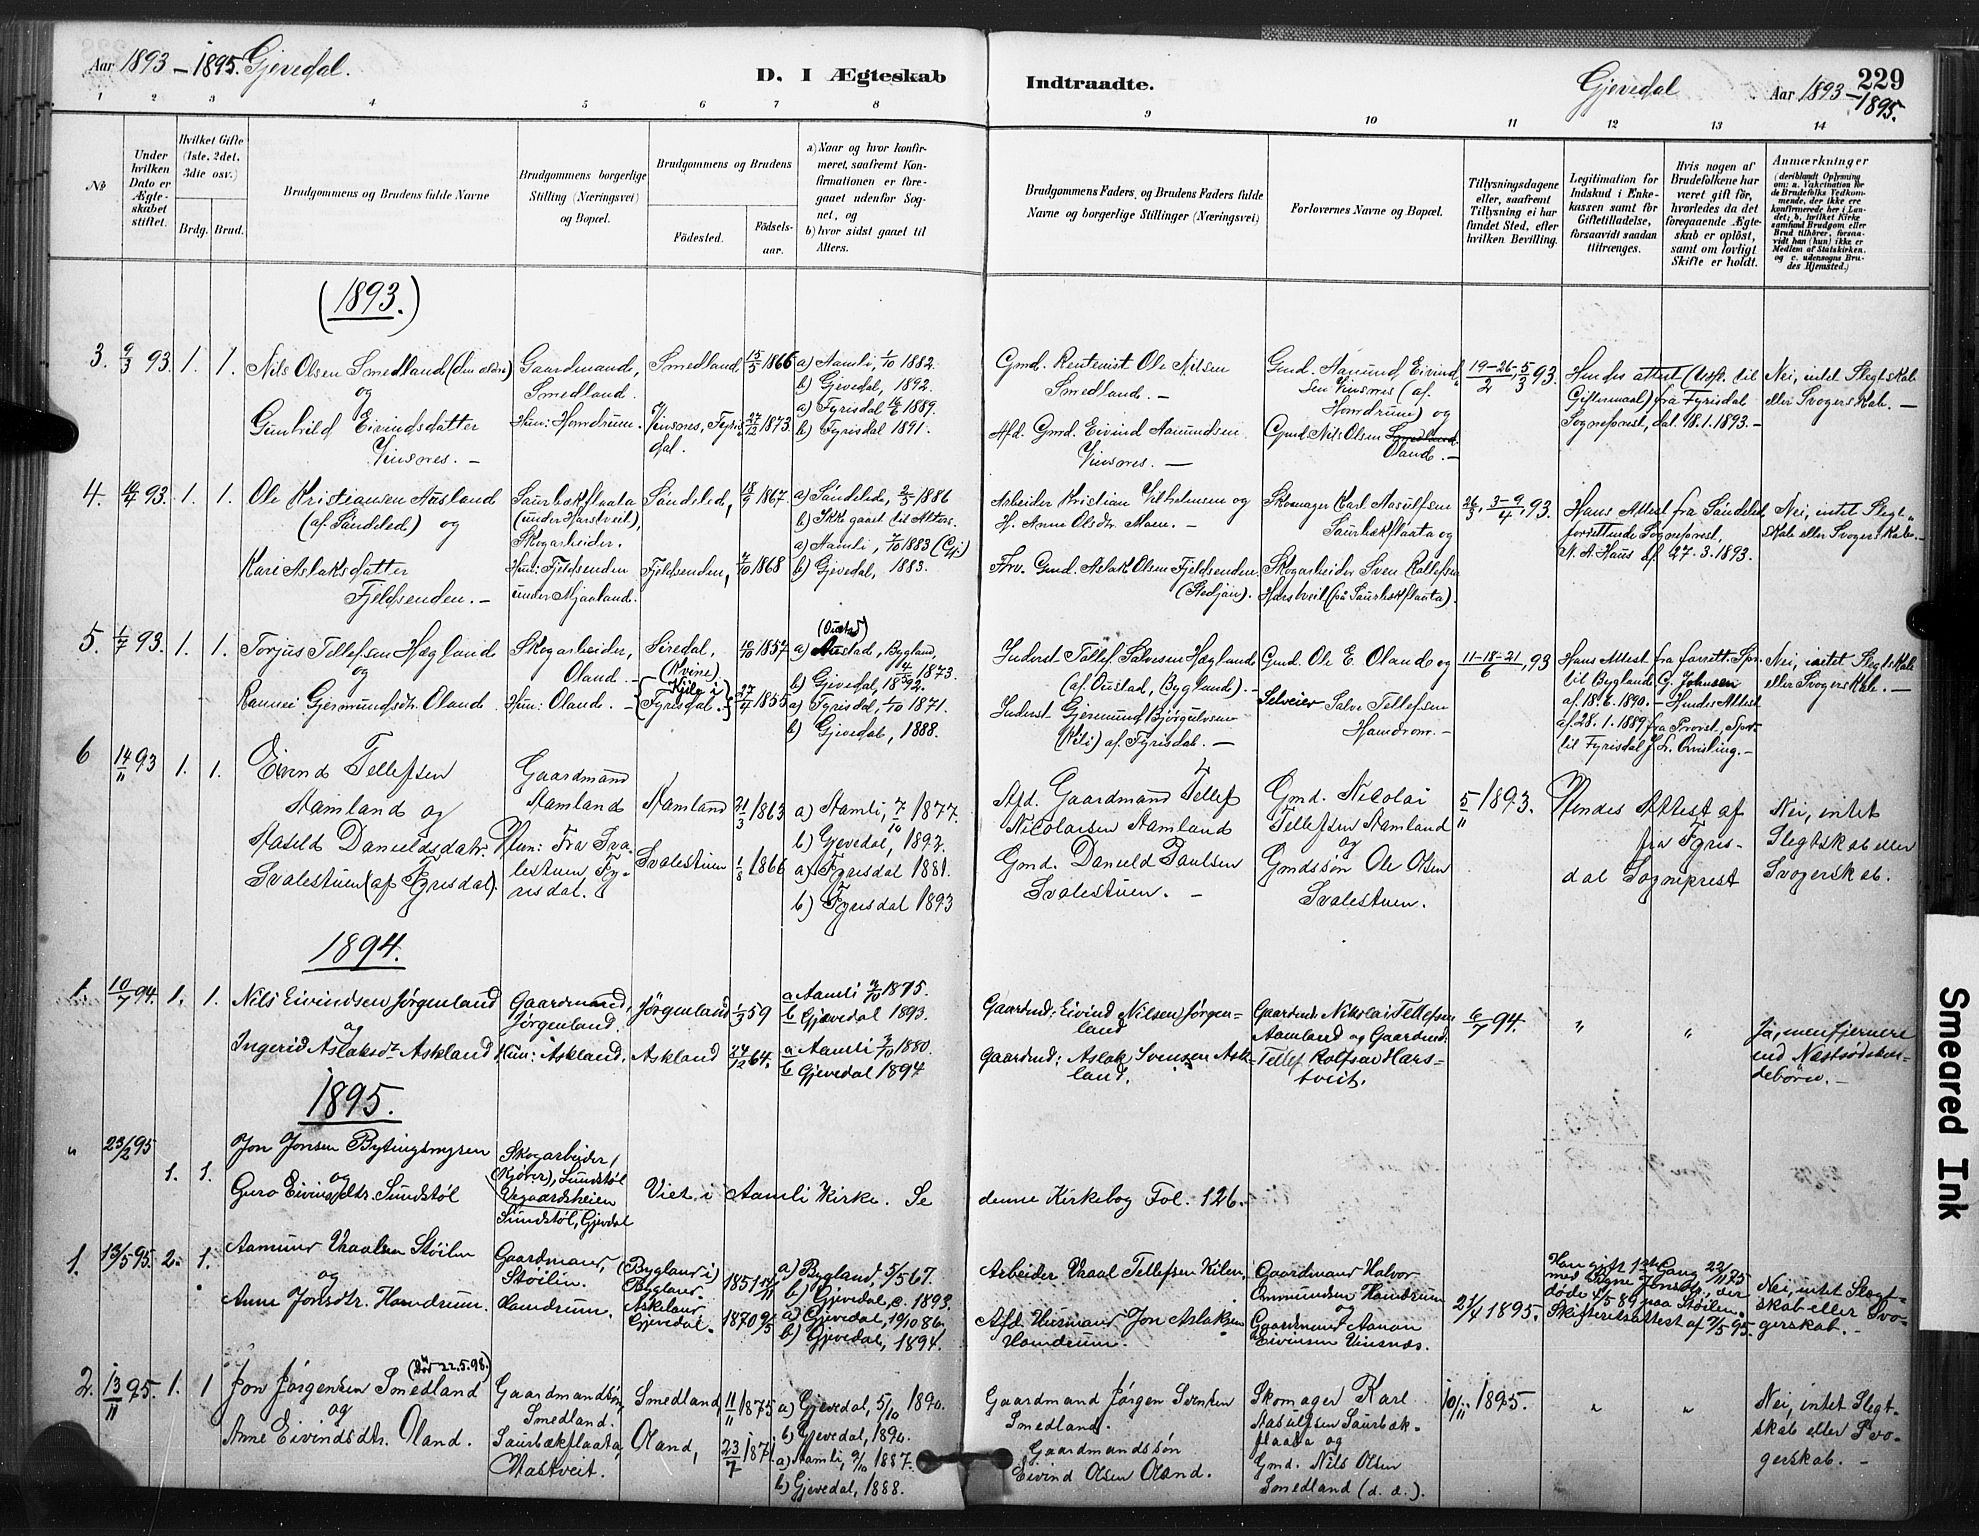 Aar 1893 – 1895. Gjevedal.
D. I Ægteskab Indtraadte.
Gjevedal Aar 1893 – 1895.
229
1 2 3 4 5 6 7 8 9 10 11 12 13 14
No
Under hvilken Dato er Ægteskabet stiftet.
Hvilket Gifte (1ste, 2det, 3die osv.)
Brdg. Brud.
Brudgommens og Brudens fulde Navne
Brudgommens borgerlige Stilling (Næringsvei) og Bopæl.
Brudgommens og Brudens
Fødested.
Fødselsaar.
a) Naar og hvor konfirmeret, saafremt Konfirmationen er foregaaet udenfor Sognet, og
b) hvor sidst gaaet til Alters.
Brudgommens Faders, og Brudens Faders fulde Navne og borgerlige Stillinger (Næringsvei)
Forlovernes Navne og Bopæl.
Tillysningsdagene eller, saafremt Tillysning ei har fundet Sted, efter hvilken Bevilling.
Legitimation for Indskud i Enkekassen samt for Giftetilladelse, forsaavidt saadan tiltrænges.
Hvis nogen af Brudefolkene har været gift før, hvorledes da det foregaaende Ægteskab er opløst, samt om lovligt Skifte er holdt.
Anmærkninger (deriblandt Oplysning om: a. Vakcination for de Brudefolks Vedkommende, der ikke ere konfirmerede her i Landet; b. hvilket Kirkesamfund Brudgom eller Brud tilhører, forsaavidt han (hun) ikke er Medlem af Statskirken, og c. udensogns Brudes Hjemsted.)
(1893.)
3. 9/3 93. 1. 1. Nils Olsen Smedland (den ældre)
og
Gunhild Eivindsdatter
Vinsnes. –
Gaardmand,
Smedland.
Hun: Homdrum.
Smedland, 15/5 1866
Vinsnes, Fyrisdal. 27/12 1873
a) Aamli, 1/10 1882.
b) Gjevedal, 1892.
a) Fyrisdal 1889.
b) Fyrisdal 1891.
Gmd. Rentenist Ole Nilsen
Smedland. –
Afd. Gmd. Eivind Aamundsen
Vinsnes. –
Gmd. Aamund Eivindsen Vinsnes (af
Homdrum) og
Gmd. Nils Olsen Smedland
Oland. –
19–26/2, 5/3 93.
Hendes attest (Udst. til
Giftermaal) fra Fyrisdal
Sognepræst, dat. 18.1.1893. –
Nei, intet Slegtskab
eller Svogerskab. –
4. 93. 1. 1. Ole Kristiansen Aasland
(af Søndeled) og
Kari Aslaksdatter
Fjeldsenden. –
Saurbækflaata
(under Harstveit),
Skogarbeider.
Hun: Fjeldsenden
under Mjaaland.
Søndeled, 18/9 1867.
Fjeldsenden, 1868
a) Søndeled, 1886
b) Ikke gaaet til Alters.
a) Aamli, 1883 (Gj.)
b) Gjevedal, 1883.
Arbeider Kristian Vilhelmsen og
H. Anne Olsdtr. Moen. –
Frv. Gmd. Aslak Olsen Fjeldsenden.
Skomager Karl Aasulfsen
Saurbækflaata og
Skogarbeider Sven Rollefsen
Harstveit (på Saurbækflaata).
26/3, 3–9/4, 93.
Hans Attest fra Søndeled,
forrettende Sognepræst,
af 27.3.1893.
Nei, intet Slegtskab eller Svogerskab. –
5. 1/7 93. 1. 1. Torjus Tellefsen Hægland
og
Rannei Gjermundsdtr. Oland.
Skogarbeider,
Oland. –
Hun: Oland. –
Siredal,
(Kvine) 1857
Fyrisdal. 27/4 1855
(Oustad)
a) Austad, Bygland, 1873.
b) Gjevedal, 1892.
a) Fyrisdal, 1/10 1871.
b) Gjevedal, 1888.
Inderst Tellef Salvesen Hægland
(af Oustad, Bygland). –
Inderst Gjermund Bjørgulvsen
af Fyrisdal. –
Gmd. Ole E. Oland og
Selveier Salve Tellefsen
Hamdrom. –
11–18–21/6, 93
Hans Attest fra forrett. Spr.
til Bygland G. Johnsen
af 18.6.1890. – Hendes Attest
af 28.1.1889 fra Provst, Spr.
til Fyrisdal J. L. Qvisling. –
Nei, intet Slegtskab
eller Svogerskab. –
6 14/11 93 1. 1. Eivind Tellefsen
Aamland og
Aaseld Danieldsdatr.
Svalestuen (af Fyrisdal).
Gaardmand
Aamland
Hun: Fra Svalestuen Fyrisdal.
Aamland 21/3 1863
Svalestuen 1866
a) Aamli, 7/10 1877.
b) Gjevedal, 1892.
a) Fyrisdal 1881.
b) Fyrisdal 1893
Afd. Gaardmand Tellef
Nicolaisen Aamland
Gmd. Danield Paulsen
Svalestuen. –
Gmd. Nicolai
Tellefsen Aamland
og
Gmdssøn Ole Olsen
Svalestuen.
5/11 1893.
Hendes Attest af
fra Fyrisdal Sogneprest
Nei, intet
Slegtskab eller
Svogerskab.
1894.
1. 10/7 94. 1. 1. Nils Eivindsen Jørgenland
og
Ingerid Aslaksdt. Askland.
Gaardmand,
Jørgenland.
Hun: Askland.
Jørgenland 1/3 59
Askland 64.
a Aamli 1875.
b Gjævedal 1893.
a Aamli 1880.
b Gjevedal 1894
Gaardmd: Eivind Nilsen Jørgenland
Gaardmd: Aslak Svensen Askland.
Gaardmd. Nikolai Tellefsen
Aamland og Gaardmd:
Tellef Rolfsen Harstveit.
6/7 94.
"
"
Ja, men fjernere
end Næstsødskendebørn. –
1895.
" 23/2 95 1. 1. Jon Jonsen Bytingsmyren
og
Guro Eivindsdtr. Sundstøl
Skogarbeider,
Sundstøl
Vegaardsheien
Sundstøl, Gjevdal
Viet i Aamli Kirke. Se denne Kirkebog Fol. 126.
1. 13/5 95. 2. 1. Aamund Vraalsen Støilen
og
Anne Jonsdtr. Hamdrum.
Gaardmand,
Støilen.
Hamdrum.
(Bygland i)
Bygland. 1851 14/11
Askland
Gjevedal. 1870 9/5
a) Bygland, 5/5 67.
b) Gjevedal, c. 1893.
a) Gjevedal, 19/10 86.
b) Gjevedal, 1894.
Arbeider Vraal Tellefsen Kilen.
Afd. Huusmand Jon Aslaksen
Hamdrum.
Gaardmand Halvor
Ommundsen Hamdrum
og
Gaardmand Aanon
Eivindsen Vinsnæs.
21/4 1895.
Han gift 1ste Gang 22/11 75
med Signe Jonsdtr., der
døde 4/5 89 paa Støilen.
Skifteretsattest af 7/5 95.
Nei, intet Slegtskab eller Svogerskab. –
2. 13/11 95. 1. 1 Jon Jørgensen Smedland (Død 22.5.98.)
og
Anne Eivindsdtr. Oland.
Gaardmandssøn,
Smedland.
Saurbækflaata,
Mastveit.
Smedland, 11/11 1875
Oland, 23/7 1871
a) Gjevedal, 5/10 1890.
b) Gjevedal, 1894.
a) Aamli, 9/10 1887.
b) Gjevedal, 1888.
Gaardmand Jørgen Svensen
Smedland.
Gaardmandssøn
Eivind Olsen Oland.
Skomager Karl
Aasulfsen Saurbækflaata og
Gmd. Nils Olsen
Smedland (d. æ.).
10/11 1895.
"
"
Nei, intet Slegtskab eller Svogerskab. –
Smeared Ink